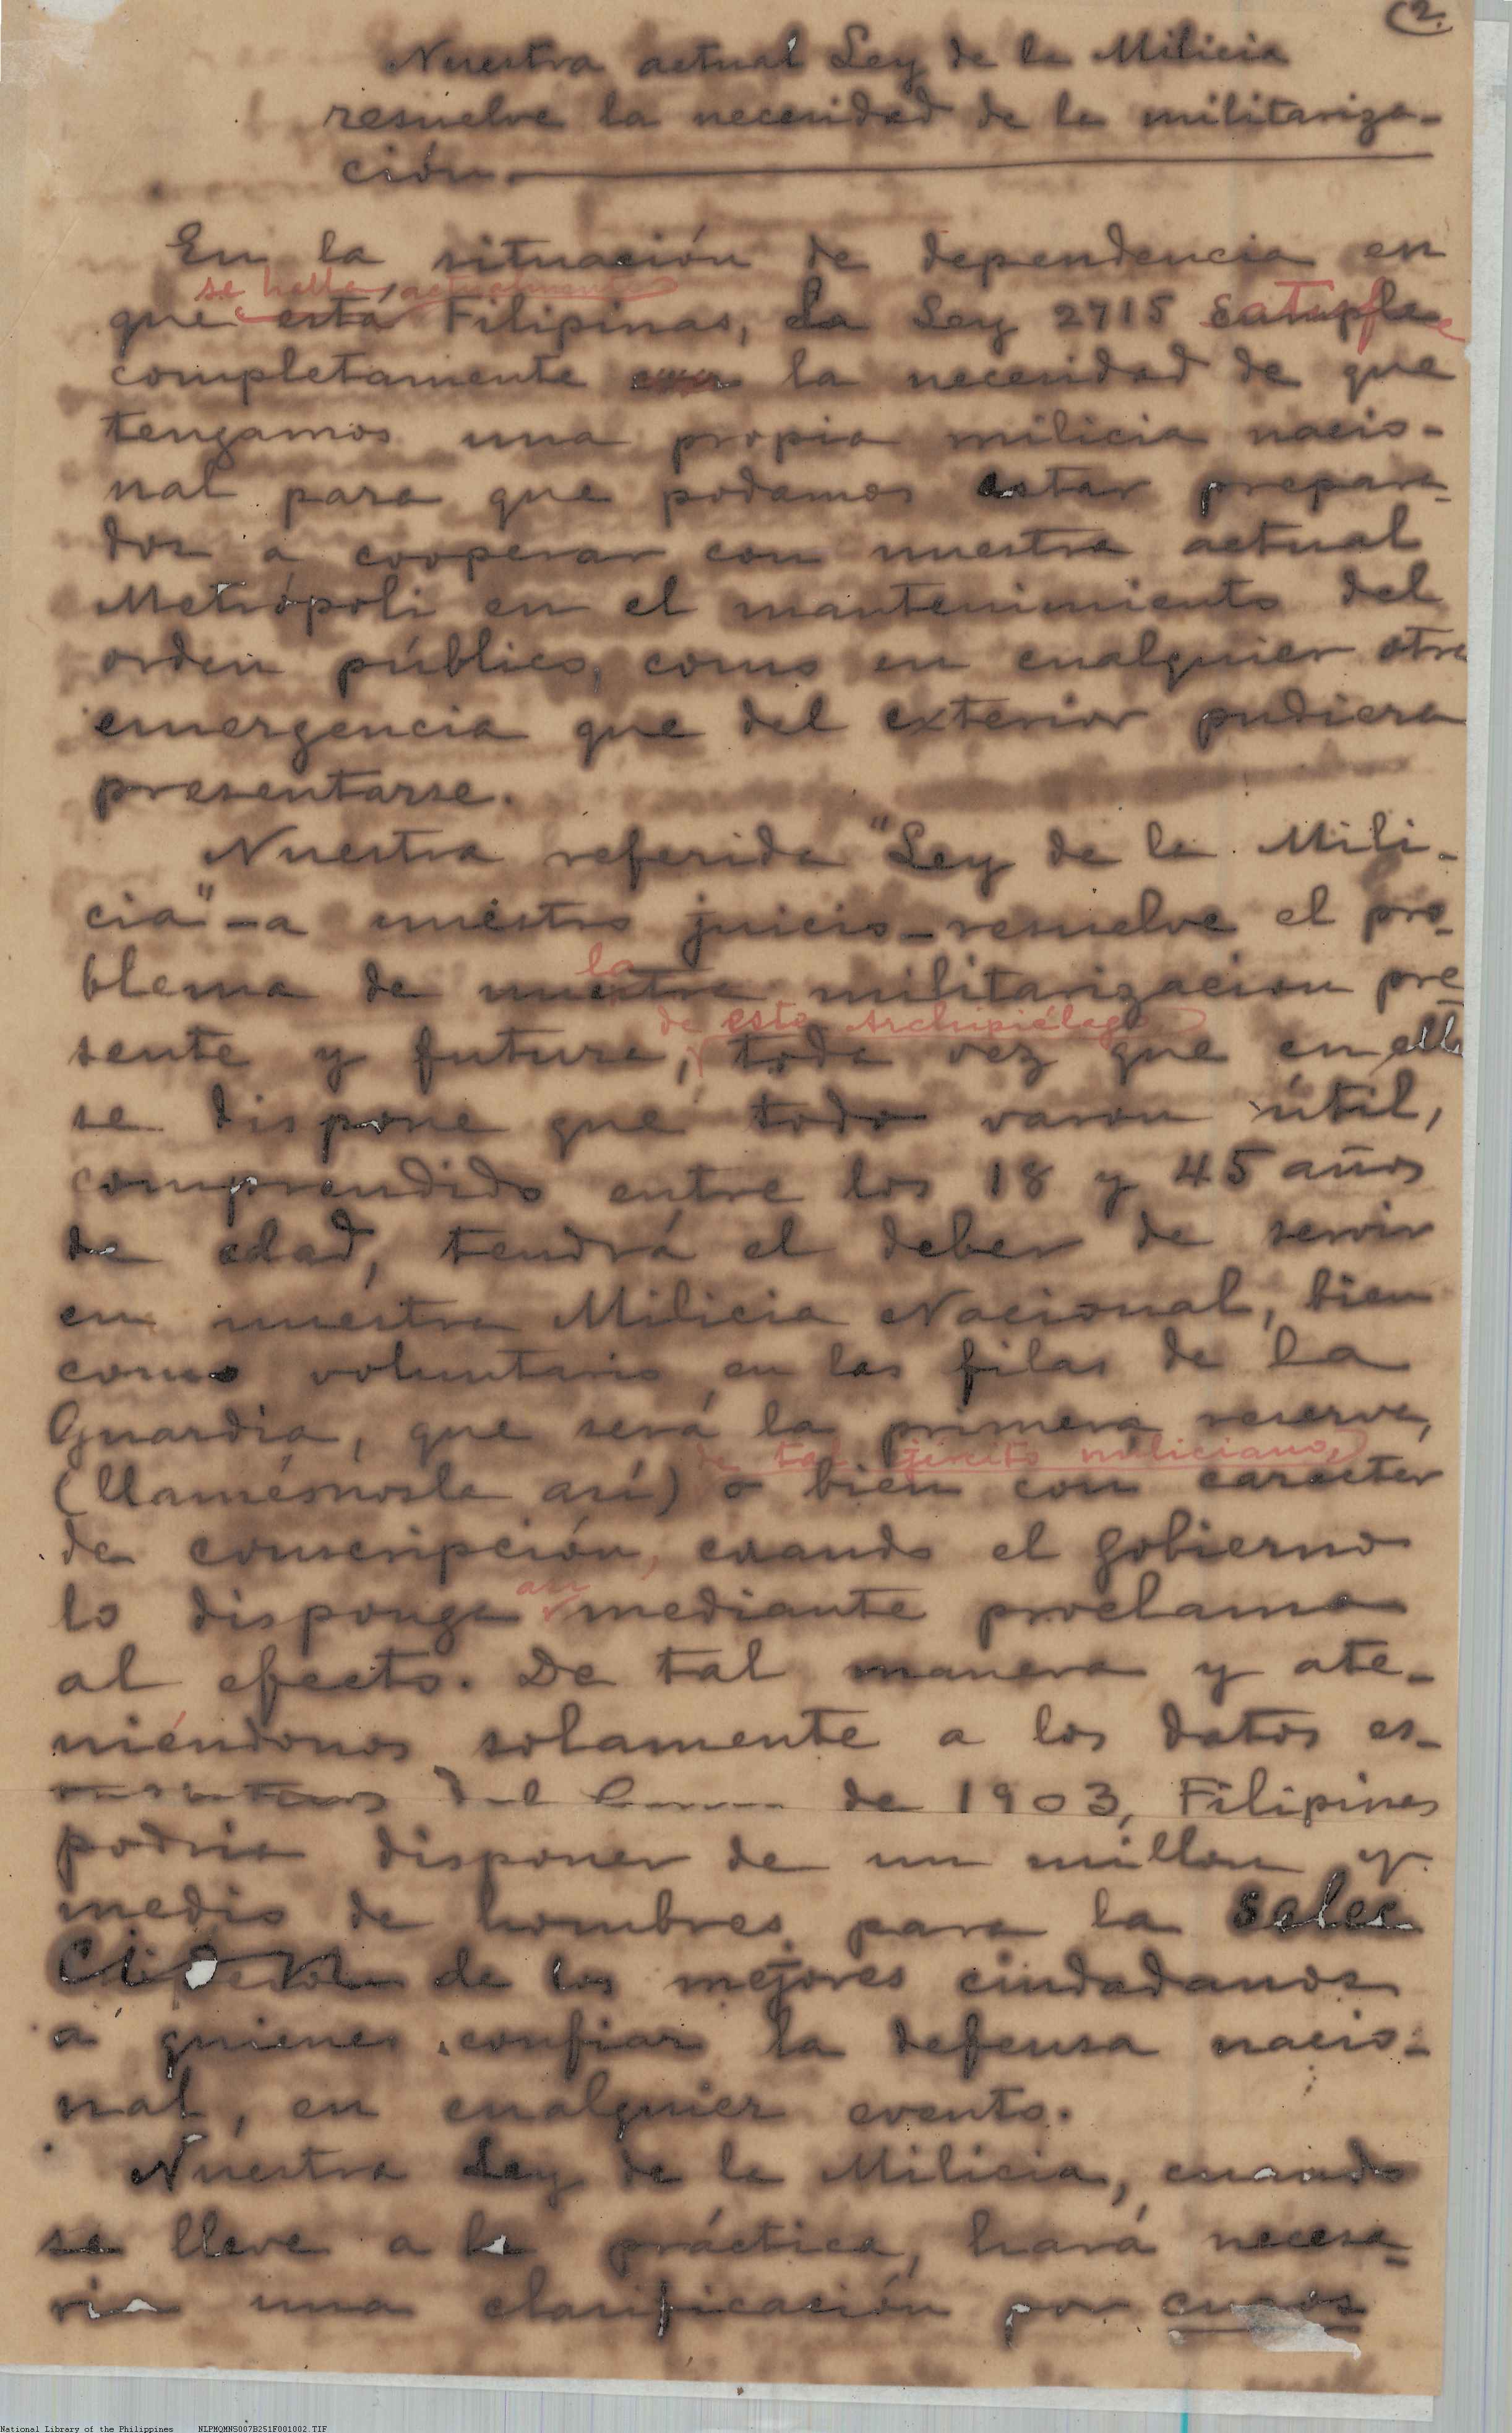 (2.
Nuestra actual Ley de la Milicia
resuelve la necesidad de la militariza-
ción.
En la situación de dependencia en
se halla actualmente
que está Filipinas, la Ley 2715 satisface
completamente la necesidad de que
tengamos una propia milicia nacio-
nal para que podamos estar prepara-
dos a cooperar con nuestra actual
Metrópoli en el mantenimiento del
orden público, como en cualquier otra
emergencia que del exterior pudiera
presentarse.
Nuestra referida "Ley de la Mili-
cia" - a nuestro juicio - resuelve el pro-
la
blema de nuestra militarizacion pre
de este Archipiélago
sente y futura, toda vez que en ella
se dispone que todo varon útil,
comprendido entre los 18 y 45 años
de edad, tendrá el deber de servir
en nuestra Milicia Nacional, bien
como voluntario en las filas de la
Guardia, que será la primera reserva,
de tal ejército miliciano,
(llamésmosla así) o bien con carácter
de conscripción, cuando el gobierno
así
lo disponga mediante proclama
al efecto. De tal manera y ate-
niéndonos solamente a los datos es-
del de 1903, Filipinas
podria disponer de un millon y
medio de hombres para la selec
ción de los mejores ciudadanos
a quienes confiar la defensa nacio-
nal, en cualquier evento.
Nuestra Ley de la Milicia, cuando
se lleve a la práctica, hará necesa-
ria una clasificación por
National Library of the Philippines NLPMQMNS007B251F001002.TIF